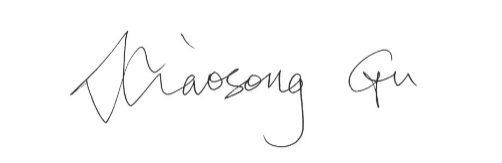 Xiaosong Gu